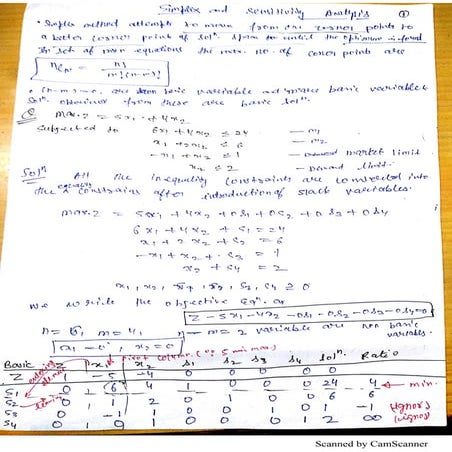 Simplex and Sensitivity Analysis ①
• Simplex method attempts to move from one corner points to
a better corner point of solⁿ. space until the optimum is found
In set of mxn equations the max. no. of corner points are
nCm = n! / m!(n-m)!
• (n-m) = 0, are non basic variable and m are basic variables
solⁿ. obtained from these are basic solⁿ.
Q max.Z = 5x1 + 4x2
Subjected to 6x1 + 4x2 ≤ 24 — m1
x1 + 2x2 ≤ 6 — m2
-x1 + x2 ≤ 1 — market limit
x2 ≤ 2 — Demand limit
Solⁿ All the inequality constraints are converted into
the equality constrains after introduction of slack variables.
max.Z = 5x1 + 4x2 + 0s1 + 0s2 + 0s3 + 0s4
6x1 + 4x2 + s1 = 24
x1 + 2x2 + s2 = 6
-x1 + x2 + s3 = 1
x2 + s4 = 2
x1, x2, s1, s2, s3, s4 ≥ 0
we write the objective eqⁿ. as
Z - 5x1 - 4x2 - 0s1 - 0s2 - 0s3 - 0s4 = 0
n = 6, m = 4, n-m = 2 variable are non basic
variables.
x1 = 0, x2 = 0
pivot column
Basic Z x1 x2 s1 s2 s3 s4 solⁿ. Ratio
Z 1 -5 -4 0 0 0 0 0
entering
s1 0 6 4 1 0 0 0 24 4 ← min.
s2 0 1 2 0 1 0 0 6 6
s3 0 -1 1 0 0 1 0 1 -1 (ignor)
s4 0 0 1 0 0 0 1 2 ∞ (ignor)
Scanned by CamScanner